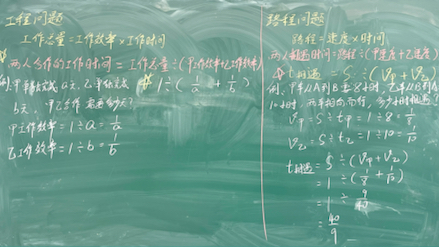 工程问题
工作总量=工作效率×工作时间
两人合作的工作时间=工作总量÷(甲工作效率+乙工作效率)
例:甲单独完成a天,乙单独完成
b天,甲乙合作需要多少天?
1÷(1/a+1/b)
甲工作效率=1÷a=1/a
乙工作效率=1÷b=1/b
路程问题
路程=速度×时间
两人相遇时间=路程÷(甲速度+乙速度)
t相遇=S÷(V甲+V乙)
例:甲车从A到B要8小时,乙车从B到A
10小时,两车相向而行,多少小时相遇?
V甲=S÷t甲=1÷8=1/8
V乙=S÷t乙=1÷10=1/10
t相遇=S÷(V甲+V乙)
=1÷(1/8+1/10)
=1÷9/40
=40/9